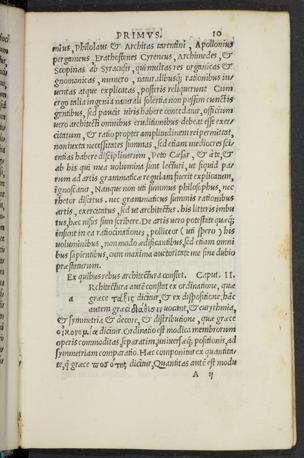 PRIMVS. 10
mius, Philolaus & Architas tarentini, Apollonius
pergaeus, Erathosthenes Cyreneus, Archimedes, &
Scopinas ab Syracusis, qui multas res organicas &
gnomonicas, numero, naturalibusq; rationibus in-
uentas atque explicatas, posteris reliquerunt. Cum
ergo talia ingenia naturali solertia non passim cunctis
gentibus, sed paucis uiris habere concedatur, officium
uero architecti omnibus eruditionibus debeat esse exer
citatum, & ratio propter amplitudinem rei permittat,
non iuxta necessitates summas, sed etiam mediocres sci
entias habere disciplinarum, Peto Caesar, & à te, &
ab his qui mea uolumina sunt lecturi, ut siquid pa-
rum ad artis grammaticae regulam fuerit explicatum,
ignoscatur, Nanque non uti summus philosophus, nec
rhetor disertus, nec grammaticus summis rationibus
artis, exercitatus, sed ut architectus, his literis imbu
tus, haec nisus sum scribere. De artis uero potestate quaeq;
insunt in ea ratiocinationes, polliceor (uti spero) his
uoluminibus, non modo aedificantibus, sed etiam omni
bus sapientibus, cum maxima autoritate me sine dubio
praestaturum.
Ex quibus rebus architectura constet. Caput. II.
Rchitectura autē constat ex ordinatione, quae
graece τάξις dicitur, & ex dispositione, hāc
autem graeci διάθεσιν uocant, & eurythmia,
& symmetria & decore, & distributione, quae graece
οἰκονομία dicitur. Ordinatio est modica membrorum
operis commoditas separatim, uniuersaeq; positionis, ad
symmetriam comparatio. Haec componitur ex quantita
te, q̄ graece ποσότης dicitur, Quantitas autē est modu
A ij